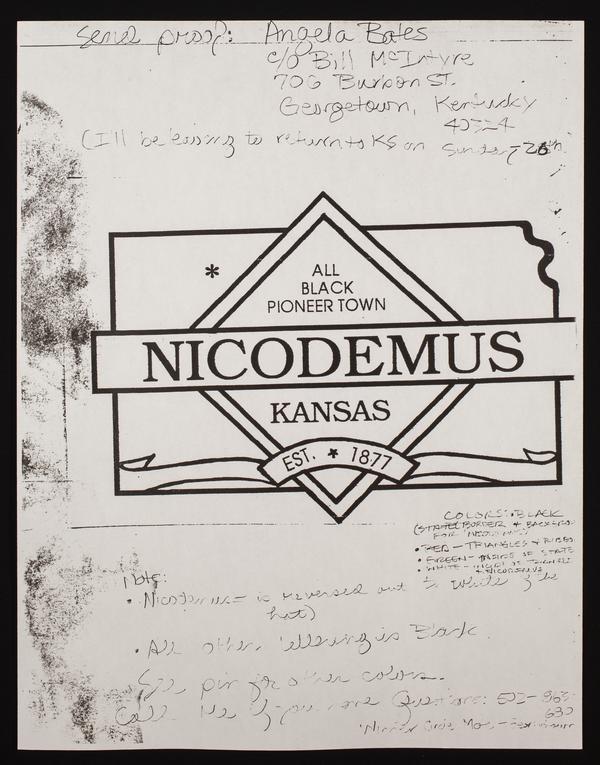 Send proof: Angela Bates
c/o Bill McIntyre
706 Burbon St.
Georgetown, Kentucky
40324
(I'll be leaving to return to KS on Sunday - 26th.
*
ALL
BLACK
PIONEER TOWN
NICODEMUS
KANSAS
EST. ★ 1877
COLORS: BLACK
(STATE BORDER & BACKGRO
FOR
• RED - TRIANGLES & RIBBO
• GREEN - INSIDE OF STATE
• WHITE - OF
Note:
• Nicodemus is reversed out White
• All other lettering is Black.
See pin for other colors.
Call me if you have Questions: 502- 863-